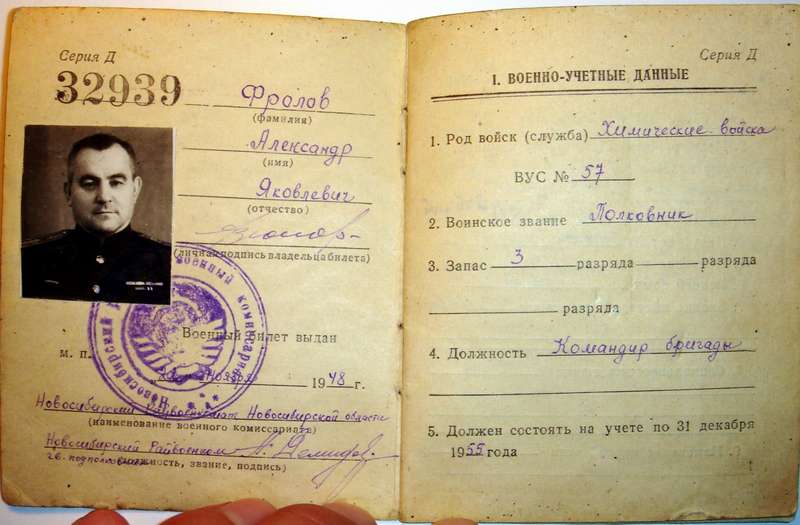 Серия Д
32939
Фролов
(фамилия)
Александр
(имя)
Яковлевич
(отчество)
(личная подпись владельца билета)
Военный билет выдан
м. п.
ноября 1948 г.
Новосибирский Райвоенкомат Новосибирской области
(наименование военного комиссариата)
Новосибирский Райвоенком
гв. подполковник
(должность, звание, подпись)
Новосибирский военный комиссариат
Серия Д
I. ВОЕННО-УЧЕТНЫЕ ДАННЫЕ
1. Род войск (служба) Химические войска
ВУС № 57
2. Воинское звание Полковник
3. Запас 3 разряда разряда
разряда
4. Должность Командир бригады
5. Должен состоять на учете по 31 декабря
1955 года